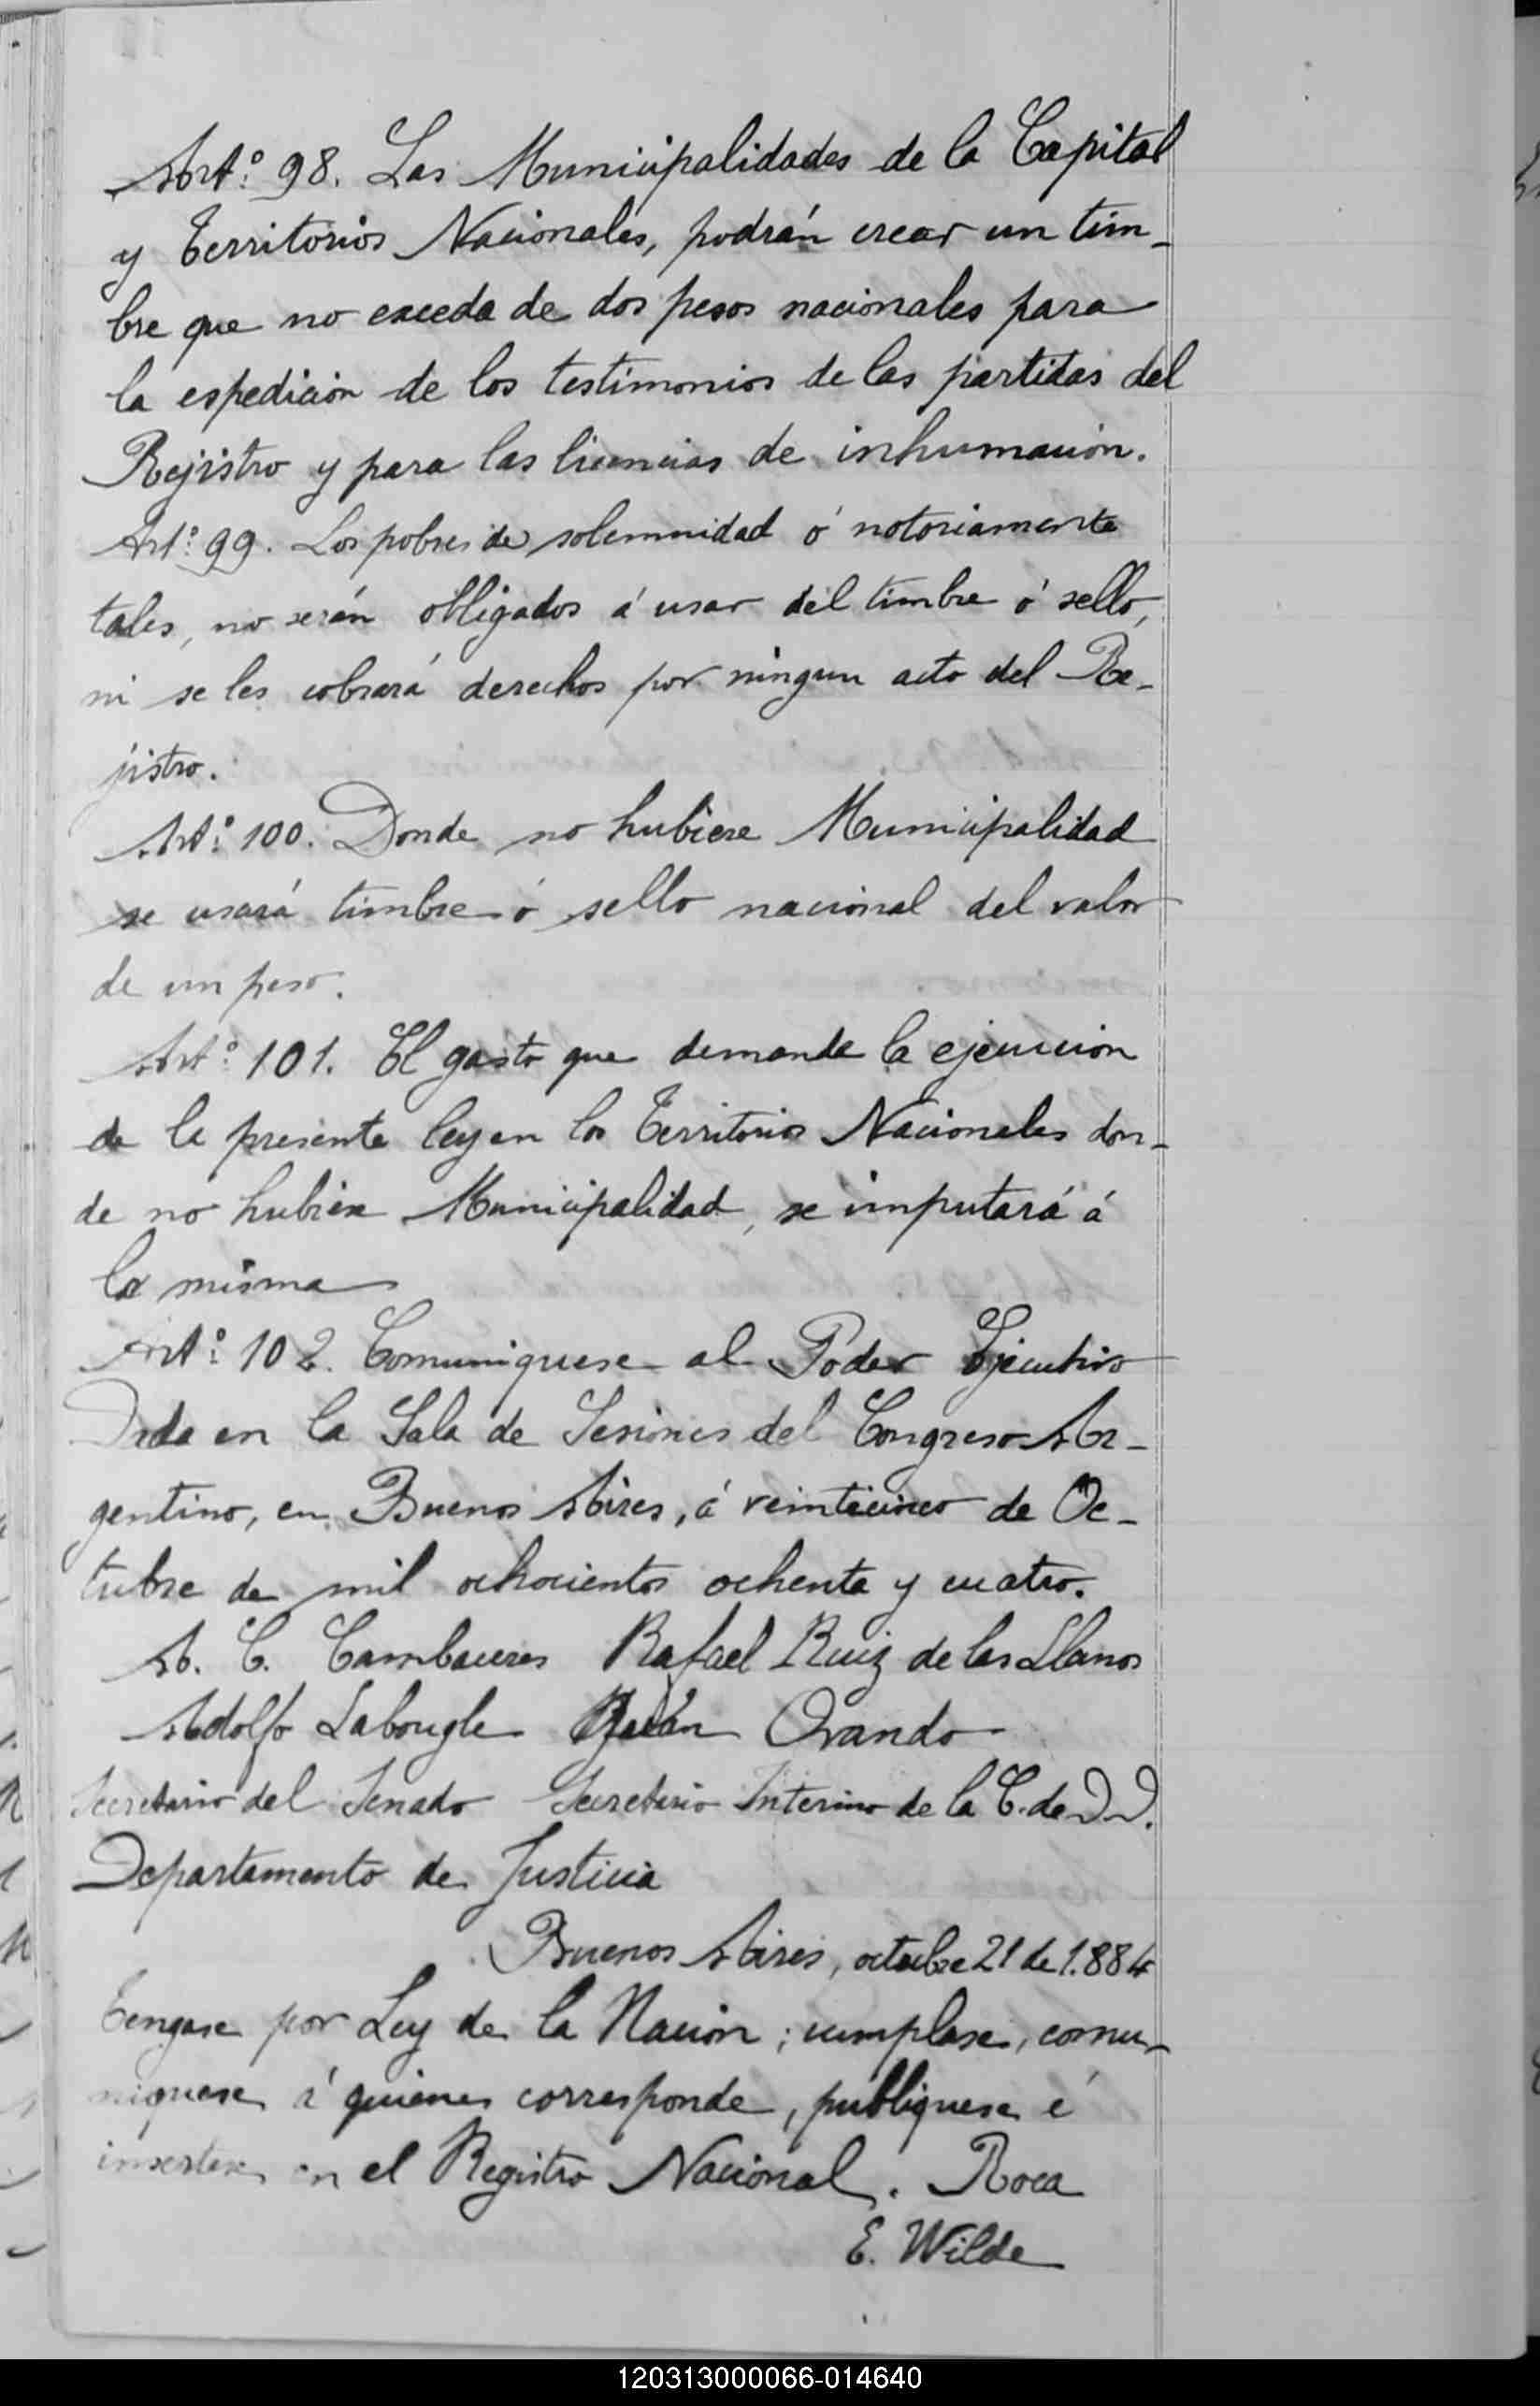 Art.º 98. Las Municipalidades de la Capital
y Territorios Nacionales, podrán crear un tim-
bre que no exceda de dos pesos nacionales para
la espedición de los testimonios de las partidas del
Rejistro y para las licencias de inhumación.
Art.º 99. Los pobres de solemnidad ó notoriamente
tales, no serán obligados á usar del timbre ó sello,
ni se les cobrará derechos por ningun acto del Re-
jistro.
Art.º 100. Donde no hubiere Municipalidad
se usará timbre ó sello nacional del valor
de un peso.
Art.º 101. El gasto que demande la ejecución
de la presente ley en los Territorios Nacionales don-
de no hubiere Municipalidad, se imputará á
la misma
Art.º 102. Comuniquese al Poder Ejecutivo
Dada en la Sala de Sesiones del Congreso Ar-
gentino, en Buenos Aires, á veinticinco de Oc-
tubre de mil ochocientos ochenta y cuatro.
A. C. Cambaceres Rafael Ruiz de los Llanos
Adolfo Labougle Ovando
Secretario del Senado Secretario Interino de la C. de D.D.
Departamento de Justicia
Buenos Aires, octubre 21 de 1.884
Tengase por Ley de la Nación; cumplase, comu-
niquese á quienes corresponde, publiquese é
insertese en el Registro Nacional. Roca
E. Wilde
120313000066-014640